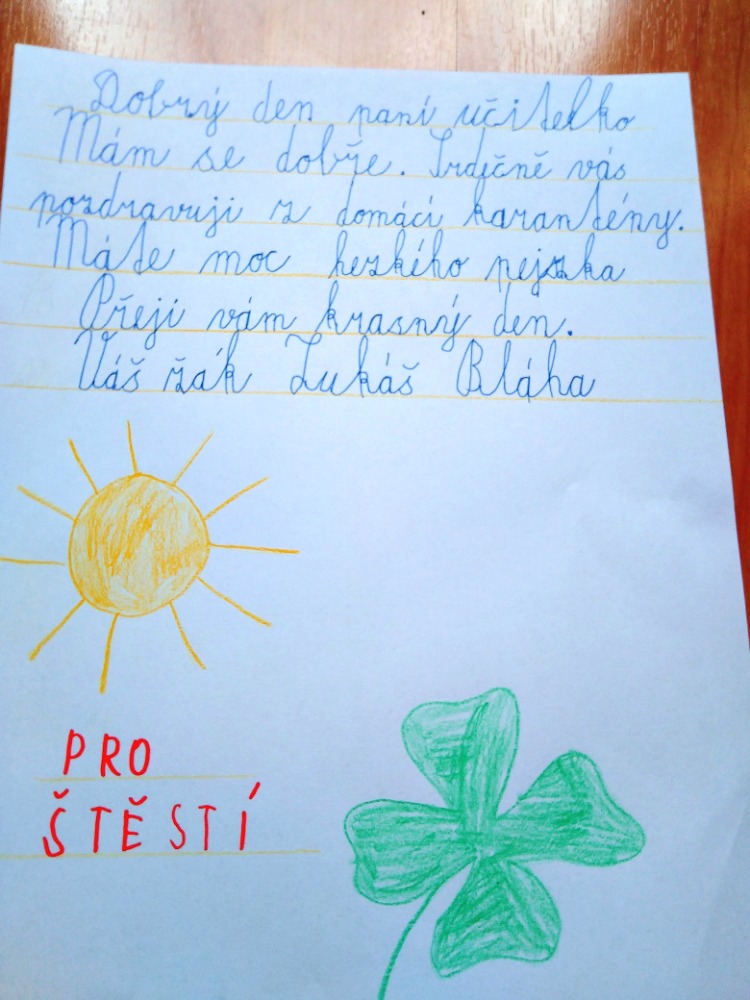 Dobrý den paní učitelko
Mám se dobře. Srdečně vás
pozdravuji z domácí karantény.
Máte moc hezkého pejska
Přeji vám krasný den.
Váš žák Lukáš Bláha
PRO
ŠTĚSTÍ